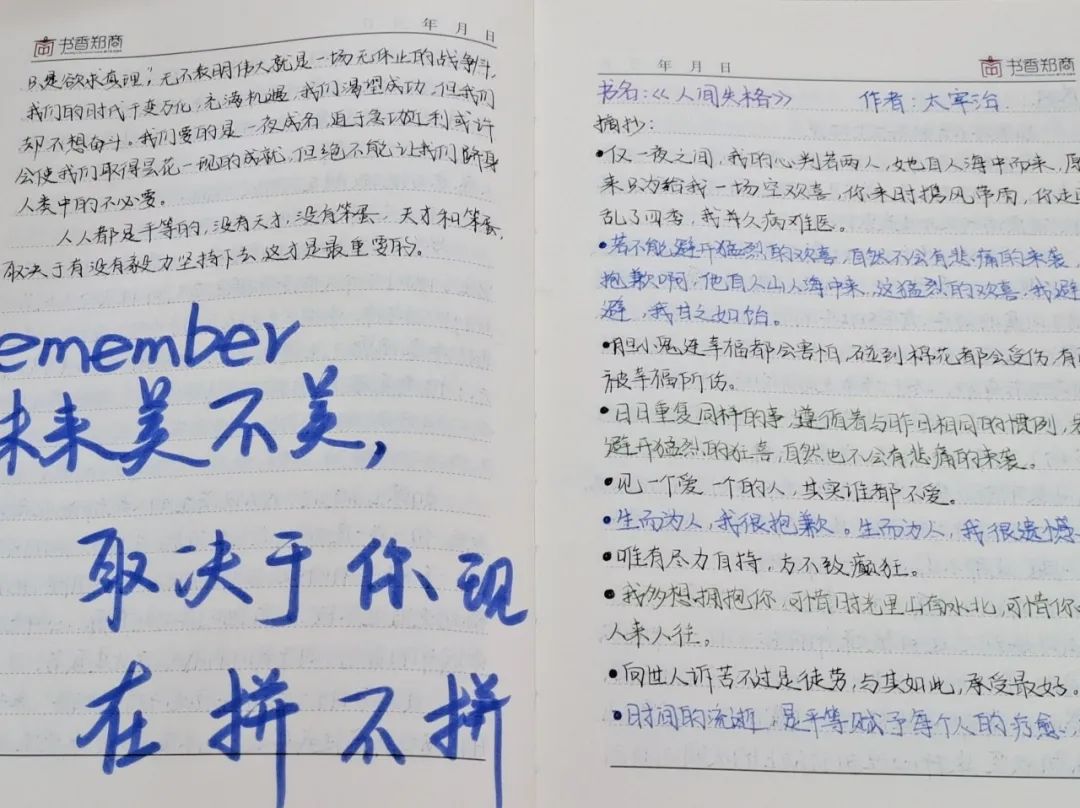 年 月 日
书香郑商
只是欲求真理，无不表明伟大就是一场无休止的战争斗。
我们的时代千变万化，充满机遇，我们渴望成功，但我们
却不想奋斗。我们要的是一夜成名，迫于急功近利或许
会使我们取得昙花一现的成就，但绝不能让我们跻身
人类中的不必要。
人人都是平等的，没有天才，没有笨蛋，天才和笨蛋，
取决于有没有毅力坚持下去这才是最重要的。
emember
未来美不美，
取决于你现
在拼不拼
年 月 日
书香郑商
书名：《人间失格》 作者：太宰治
摘抄：
•仅一夜之间，我的心判若两人，她自人海中而来，原
来只为给我一场空欢喜，你来时携风带雨，你走
乱了四季，我弃久病难医。
•若不能避开猛烈的欢喜，自然不会有悲痛的来袭，
抱歉啊，他自人山人海中来，这猛烈的欢喜，我避
避，我甘之如饴。
•胆小鬼连幸福都会害怕，碰到棉花都会受伤，有
被幸福所伤。
•日日重复同样的事，遵循着与昨日相同的惯例，若
避开猛烈的狂喜，自然也不会有悲痛的来袭。
•见一个爱一个的人，其实谁都不爱。
•生而为人，我很抱歉。生而为人，我很遗憾
•唯有尽力自持，方不致癫狂。
•我多想拥抱你，可惜时光里山南水北，可惜你
人来人往。
•向世人诉苦不过是徒劳，与其如此，承受最好。
•日时间的流逝，是平等赋予每个人的疗愈